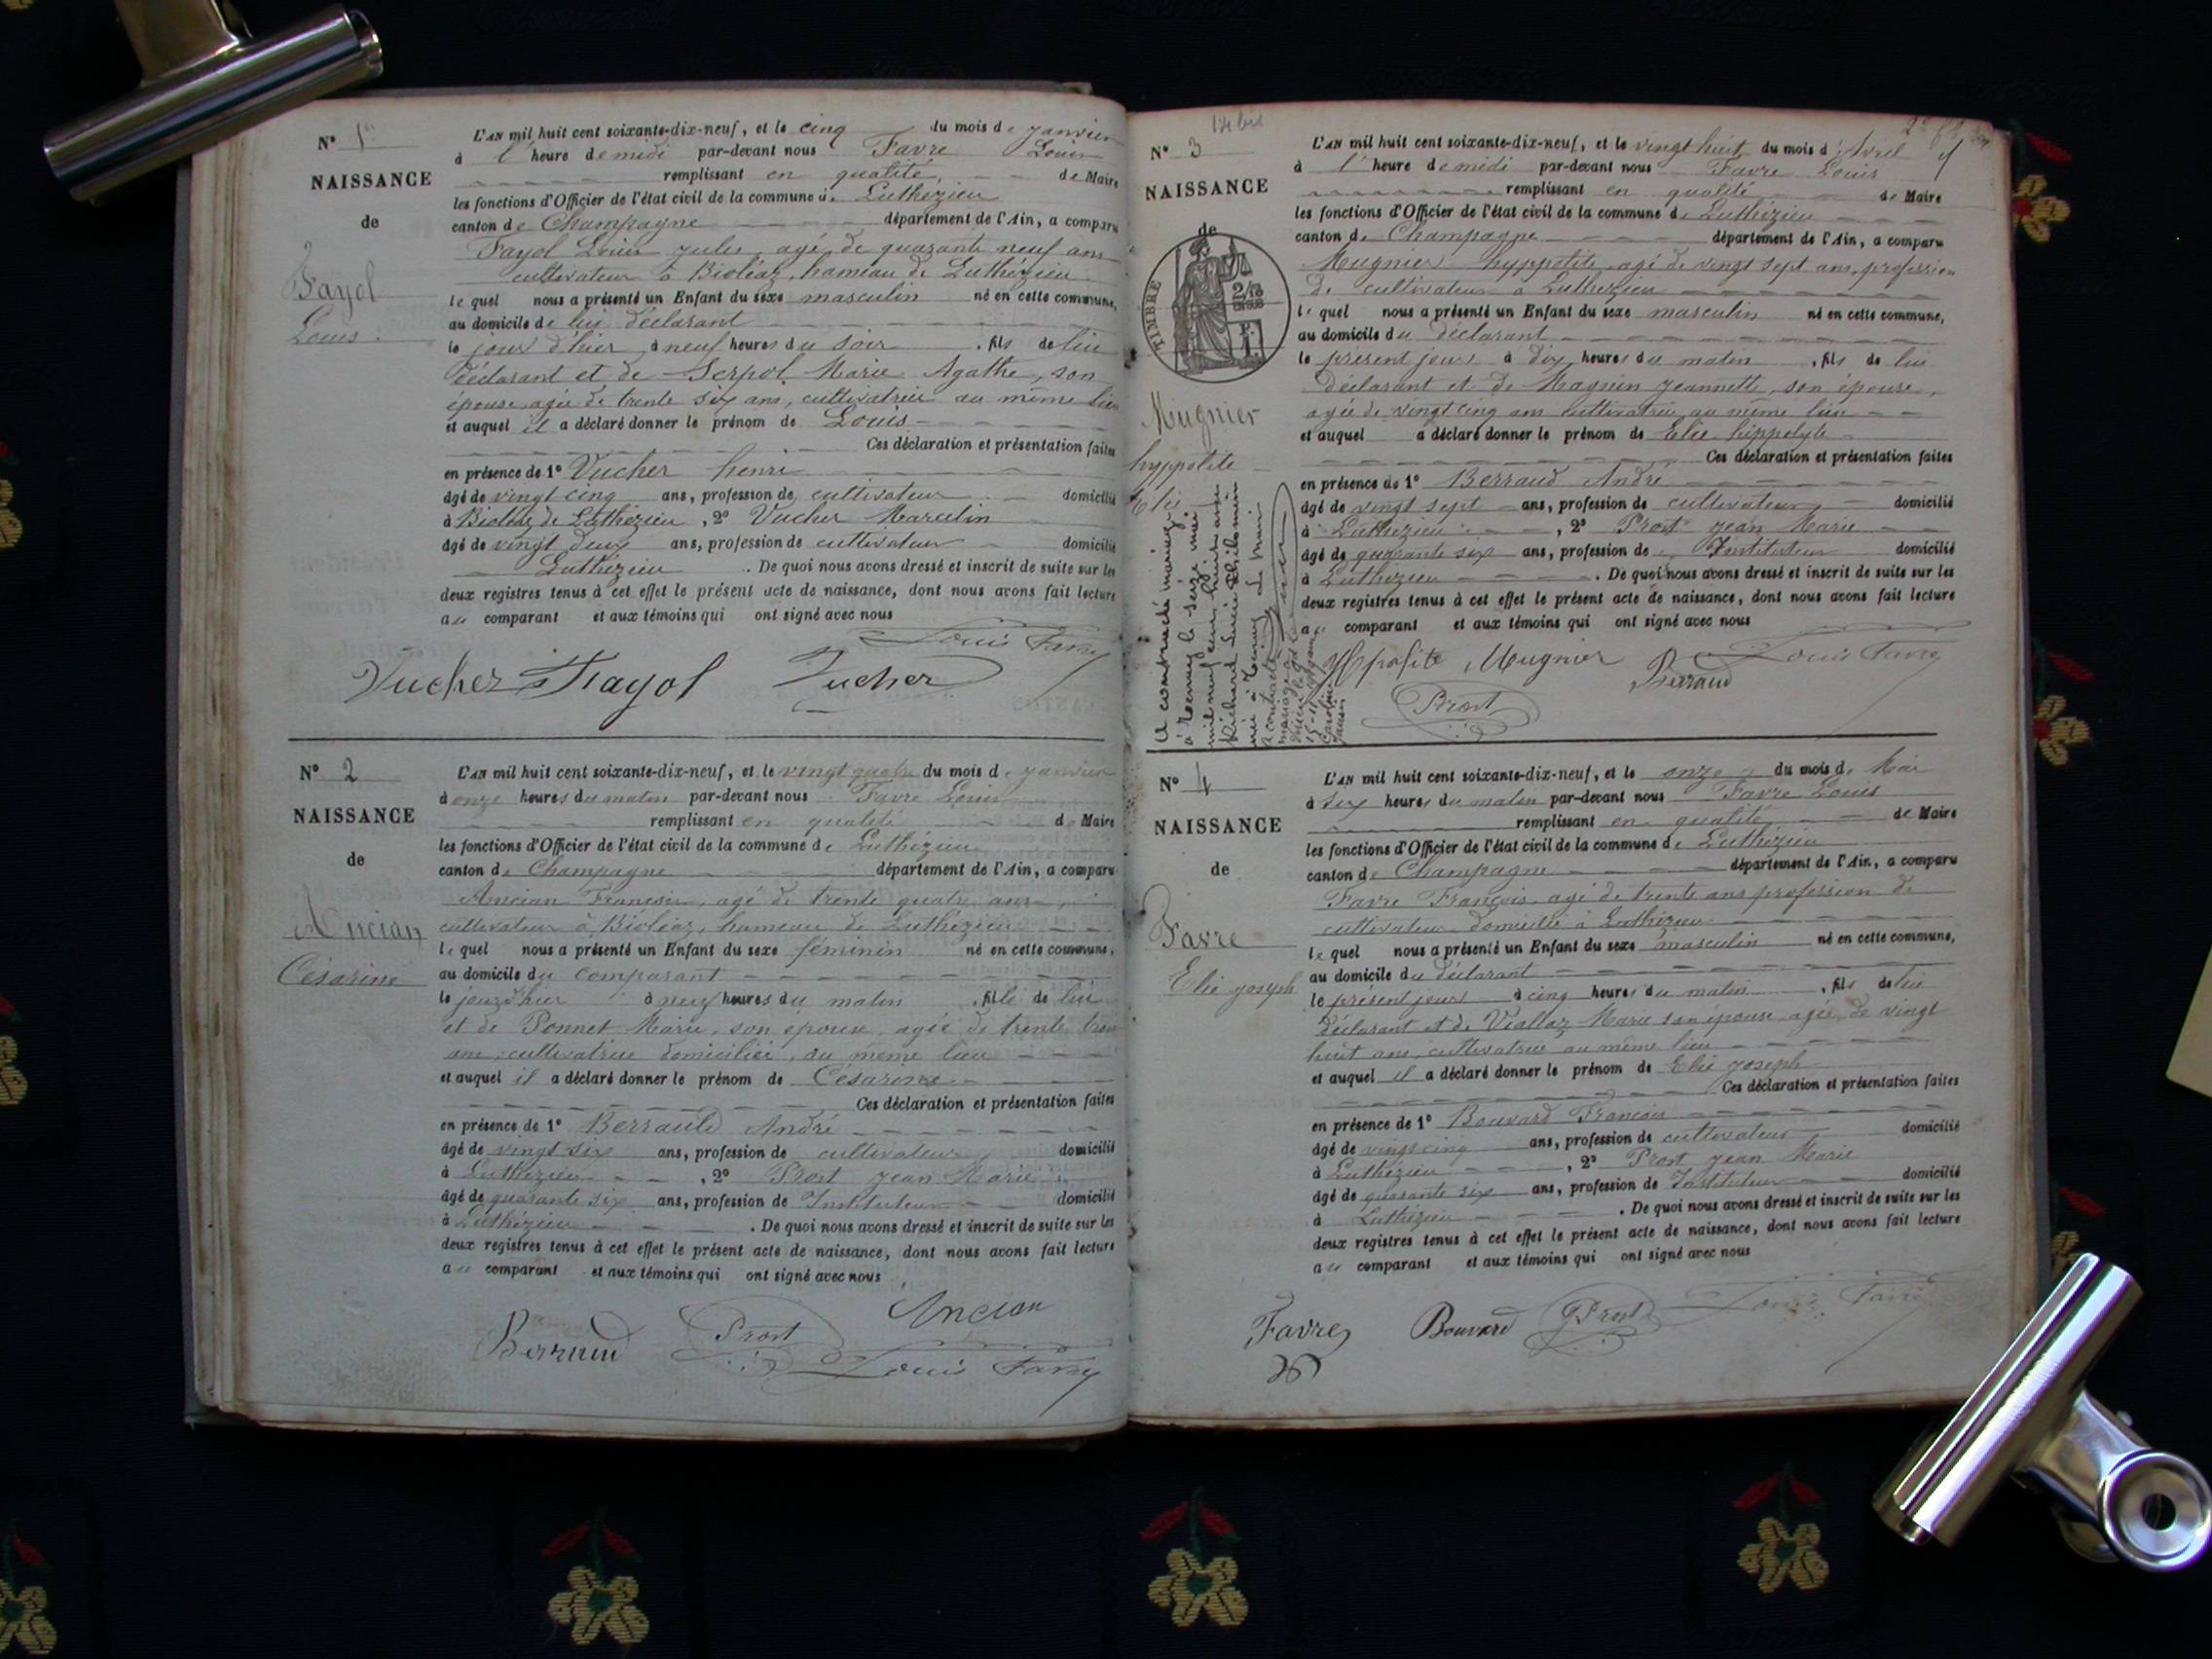 N° 1er
NAISSANCE
de
Fayol
Louis.
L'AN mil huit cent soixante-dix-neuf, et le cinq du mois de janvier
à l'heure de midi par-devant nous Favre Louis
remplissant en qualité de Maire
les fonctions d'Officier de l'état civil de la commune de Luthézieu
canton de Champagne département de l'Ain, a comparu
Fayol Louis Jules, agé de quarante neuf ans
cultivateur à Bioléaz, hameau de Luthézieu
lequel nous a présenté un Enfant du sexe masculin né en cette commune,
au domicile de lui déclarant
le jour d'hier à neuf heures du soir, fils de lui
déclarant et de Serpol Marie Agathe, son
épouse agée de trente six ans, cultivatrice au même lieu
et auquel il a déclaré donner le prénom de Louis
Ces déclaration et présentation faites
en présence de 1° Vucher henri
âgé de vingt cinq ans, profession de cultivateur domicilié
à Bioléaz de Luthézieu, 2° Vucher Marcelin
âgé de vingt deux ans, profession de cultivateur domicilié
Luthézieu. De quoi nous avons dressé et inscrit de suite sur les
deux registres tenus à cet effet le présent acte de naissance, dont nous avons fait lecture
au comparant et aux témoins qui ont signé avec nous
Louis Favre
Vucher Fayol Vucher
N° 2
NAISSANCE
de
Ancian
Césarine
L'AN mil huit cent soixante-dix-neuf, et le vingt quatre du mois de janvier
à onze heures du matin par-devant nous Favre Louis
remplissant en qualité de Maire
les fonctions d'Officier de l'état civil de la commune de Luthézieu
canton de Champagne département de l'Ain, a comparu
Ancian Francois, agé de trente quatre ans
cultivateur à Bioléaz, hameau de Luthézieu
lequel nous a présenté un Enfant du sexe féminin né en cette commune,
au domicile du comparant
le jour d'hier à neuf heures du matin, fille de lui
et de Ponnet Marie, son épouse, agée de trente trois
ans, cultivatrice domiciliée, au même lieu
et auquel il a déclaré donner le prénom de Césarine
Ces déclaration et présentation faites
en présence de 1° Berraud André
âgé de vingt six ans, profession de cultivateur domicilié
à Luthézieu, 2° Prost jean Marie
âgé de quarante six ans, profession de Instituteur domicilié
à Luthézieu. De quoi nous avons dressé et inscrit de suite sur les
deux registres tenus à cet effet le présent acte de naissance, dont nous avons fait lecture
au comparant et aux témoins qui ont signé avec nous
Ancian
Berraud Prost Louis Favre
N° 3
NAISSANCE
de
TIMBRE
2/10
EN SUS
Mugnier
hyppolite
Elie
A contracté mariage
à le seize mai
mil neuf cent
Richard Philomène
Le Maire
L'AN mil huit cent soixante-dix-neuf, et le vingt huit du mois d'Avril
à l'heure de midi par-devant nous Favre Louis
remplissant en qualité de Maire
les fonctions d'Officier de l'état civil de la commune de Luthézieu
canton de Champagne département de l'Ain, a comparu
Mugnier hyppolite, agé de vingt sept ans, profession
de cultivateur à Luthézieu
lequel nous a présenté un Enfant du sexe masculin né en cette commune,
au domicile du déclarant
le présent jour à dix heures du matin, fils de lui
déclarant et de Magnin jeannette, son épouse,
agée de vingt cinq ans cultivatrice au même lieu
et auquel a déclaré donner le prénom de Elie hippolyte
Ces déclaration et présentation faites
en présence de 1° Berraud André
âgé de vingt sept ans, profession de cultivateur domicilié
à Luthézieu, 2° Prost jean Marie
âgé de quarante six ans, profession de Instituteur domicilié
à Luthézieu. De quoi nous avons dressé et inscrit de suite sur les
deux registres tenus à cet effet le présent acte de naissance, dont nous avons fait lecture
au comparant et aux témoins qui ont signé avec nous
Hipolite Mugnier Berraud Louis Favre
Prost
N° 4
NAISSANCE
de
Favre
Elie joseph
L'AN mil huit cent soixante-dix-neuf, et le onze du mois de Mai
à six heures du matin par-devant nous Favre Louis
remplissant en qualité de Maire
les fonctions d'Officier de l'état civil de la commune de Luthézieu
canton de Champagne département de l'Ain, a comparu
Favre François, agé de trente ans profession de
cultivateur domicilié à Luthézieu
lequel nous a présenté un Enfant du sexe masculin né en cette commune,
au domicile du déclarant
le présent jour à cinq heures du matin, fils de lui
déclarant et de Viallaz Marie son épouse agée de vingt
huit ans, cultivatrice au même lieu
et auquel il a déclaré donner le prénom de Elie joseph
Ces déclaration et présentation faites
en présence de 1° Bouvard François
âgé de vingt cinq ans, profession de cultivateur domicilié
à Luthézieu, 2° Prost jean Marie
âgé de quarante six ans, profession de Instituteur domicilié
à Luthézieu. De quoi nous avons dressé et inscrit de suite sur les
deux registres tenus à cet effet le présent acte de naissance, dont nous avons fait lecture
au comparant et aux témoins qui ont signé avec nous
Favre Bouvard J Prost Louis Favre